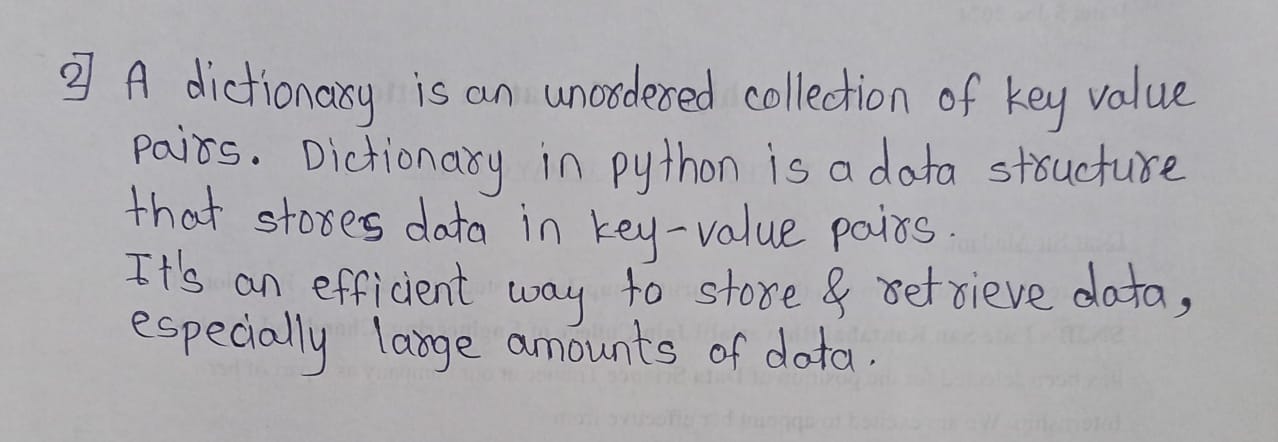 2] A dictionary is an unordered collection of key value
pairs. Dictionary in python is a data structure
that stores data in key-value pairs.
It's an efficient way to store & retrieve data,
especially large amounts of data.